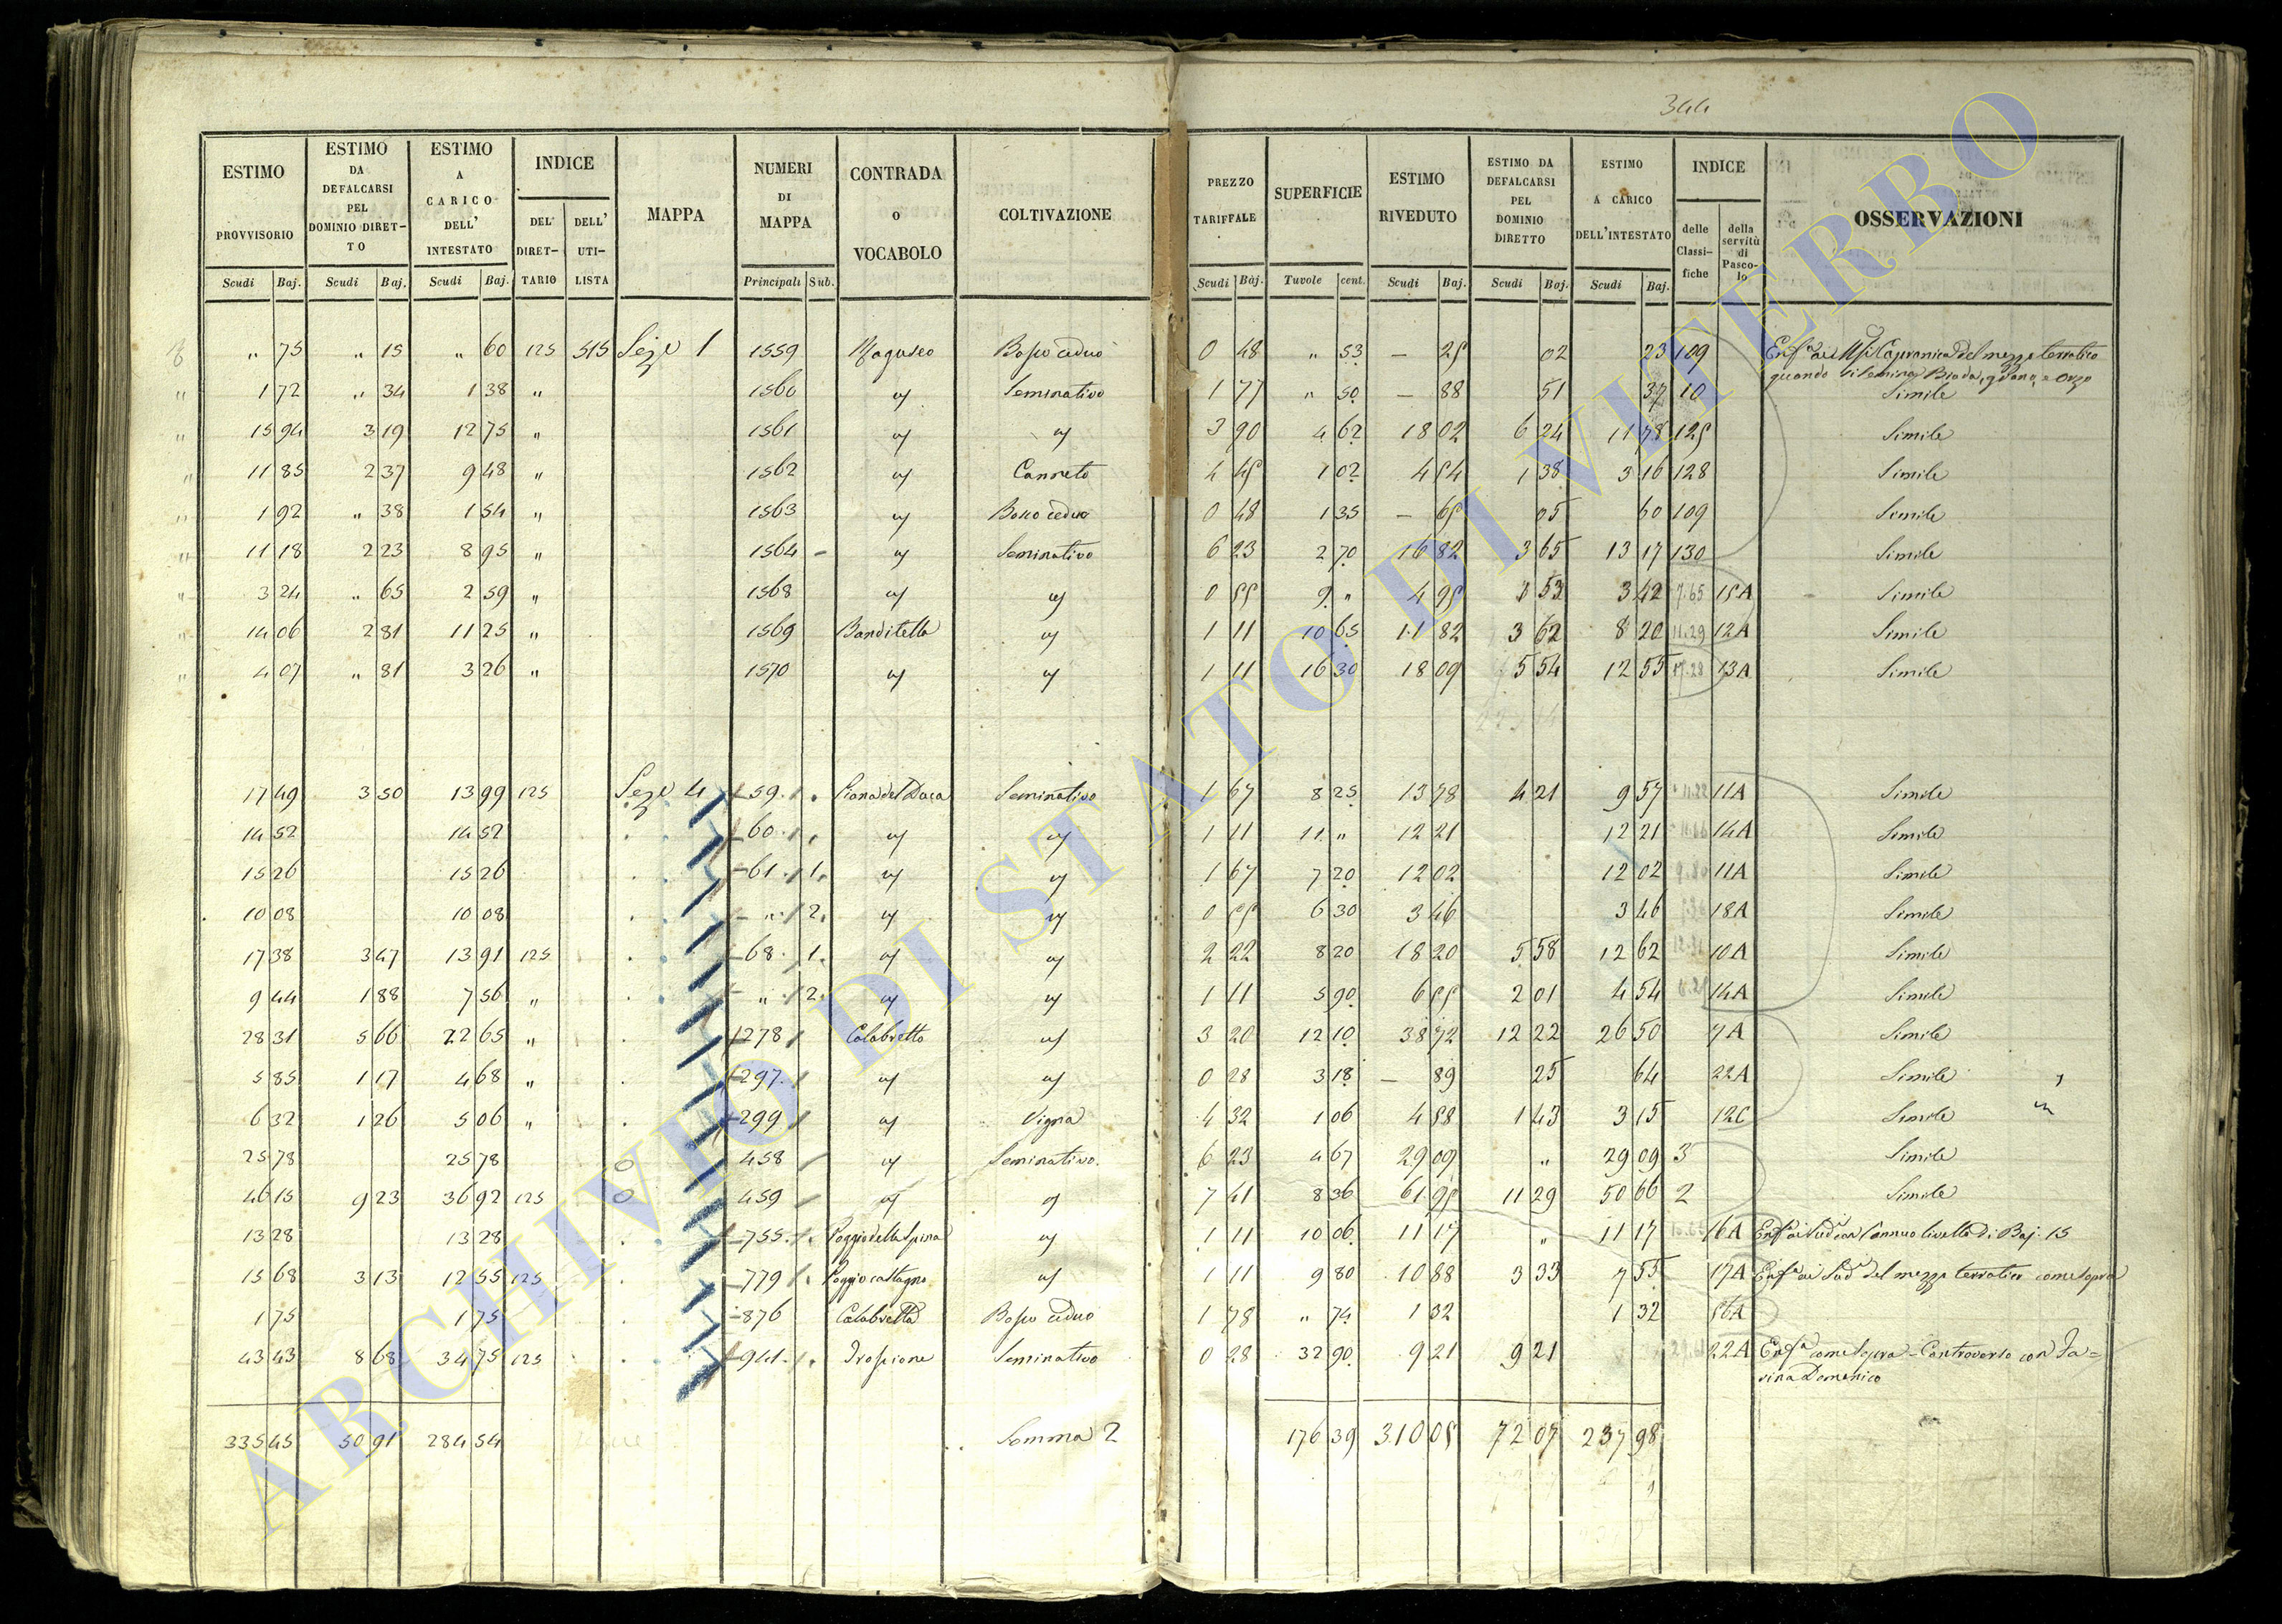 344
ESTIMO PROVVISORIO ESTIMO DA DEFALCARSI PEL DOMINIO DIRETTO ESTIMO A CARICO DELL' INTESTATO INDICE DEL DIRETTARIO DELL' UTILISTA MAPPA NUMERI DI MAPPA CONTRADA O VOCABOLO COLTIVAZIONE PREZZO TARIFFALE SUPERFICIE ESTIMO RIVEDUTO ESTIMO DA DEFALCARSI PEL DOMINIO DIRETTO ESTIMO A CARICO DELL'INTESTATO INDICE delle Classifiche della servitù di Pascolo OSSERVAZIONI
Scudi Baj. Scudi Baj. Scudi Baj. Principali Sub. Scudi Baj. Tavole cent. Scudi Baj. Scudi Boj. Scudi Baj.
" 75 " 15 " 60 125 515 Seze 1 1559 Bosco ceduo 0 48 " 53 — 25 02 23 109 del mezzo terratico
quando si semina Biada, grano, o Orzo
1 72 " 34 1 38 " 1560 Seminativo 1 77 " 50 — 88 51 37 10 Simile
15 94 3 19 12 75 " 1561 3 90 4 62 18 02 6 24 11 78 125 Simile
11 85 2 37 9 48 " 1562 Canneto 4 45 1 02 4 54 1 38 3 16 128 Simile
1 92 " 38 1 54 " 1563 Bosco ceduo 0 48 1 35 — 65 05 60 109 Simile
11 18 2 23 8 95 " 1564 Seminativo 6 23 2 70 16 82 3 65 13 17 130 Simile
3 24 " 65 2 59 " 1568 0 55 9 " 4 95 1 53 3 42 7.65 15A Simile
14 06 2 81 11 25 " 1569 Banditella 1 11 10 65 11 82 3 62 8 20 11.29 12A Simile
4 07 " 81 3 26 " 1570 1 11 16 30 18 09 5 54 12 55 17.28 13A Simile
17 49 3 50 13 99 125 Seze 4 59 Piana del Daca Seminativo 1 67 8 25 13 78 4 21 9 57 11A Simile
14 52 14 52 60 1 11 11 " 12 21 12 21 14A Simile
15 26 15 26 61 1 1 67 7 20 12 02 12 02 11A Simile
10 08 10 08 " 2 0 55 6 30 3 46 3 46 18A Simile
17 38 3 47 13 91 125 68 1 2 22 8 20 18 20 5 58 12 62 10A Simile
9 44 1 88 7 56 " " 2 1 11 5 90 6 55 2 01 4 54 14A Simile
28 31 5 66 22 65 " 278 Calabretto 3 20 12 10 38 72 12 22 26 50 7A Simile
5 85 1 17 4 68 " 297 0 28 3 18 — 89 25 64 22A Simile
6 32 1 26 5 06 " 299 Vigna 4 32 1 06 4 58 1 43 3 15 12C Simile
25 78 25 78 458 Seminativo 6 23 4 67 29 09 " 29 09 3 Simile
46 15 9 23 36 92 125 459 7 41 8 36 61 95 11 29 50 66 2 Simile
13 28 13 28 755 Poggio della Spina 1 11 10 06 11 17 " 11 17 16A annuo livello di Baj. 15
15 68 3 13 12 55 125 779 Poggio castagno 1 11 9 80 10 88 3 33 7 55 17A del mezzo terratico come sopra
1 75 1 75 876 Calabretta Bosco ceduo 1 78 " 74 1 32 1 32 56A
43 43 8 68 34 75 125 941 Seminativo 0 28 32 90 9 21 9 21 22A come sopra - Controverso con Fa=
rina Domenico
335 45 50 91 284 54 Somma 2 176 39 310 05 72 07 237 98
ARCHIVIO DI STATO DI VITERBO